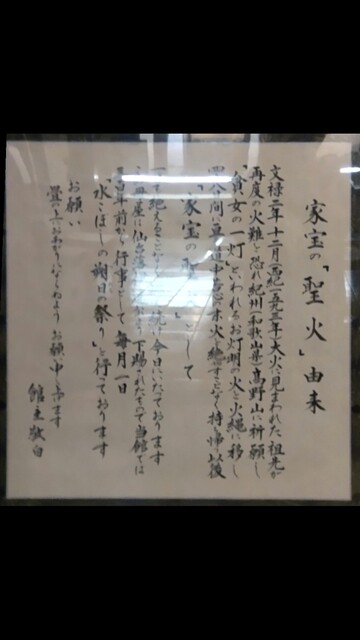 家宝の「聖火」由来
文禄二年十二月(西紀一五九三年)大火に見まわれた祖先が
再度の火難を恐れ紀州(和歌山県)高野山に祈願し
「貧女の一灯」といわれるお灯明の火を火縄に移し
四八日間に亘る道中も忍木火を絶すことなく持ち帰り以後
「家宝の聖火」として
一日も絶えることなく 続け今日にいたっております
仙台藩 下賜されたもので当館では
百年前から行事として毎月一日
「水こぼしの朔日の祭り」を行っております
お願い
畳の上におあがりにならぬよう お願い申し上げます
館主敬白